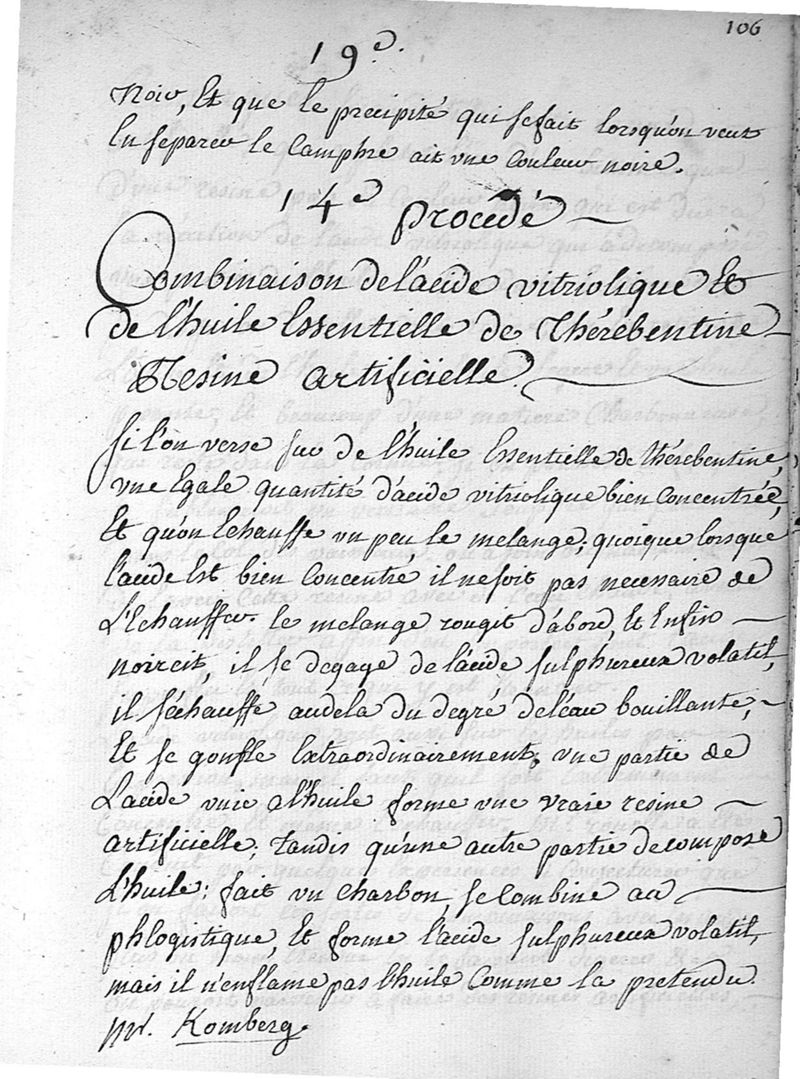 106
19e.
Noir, Et que le precipité qui se fait lorsqu'on veut
En separer le Camphre ait une Couleur noire.
14e procédé
Combinaison de l'acide vitriolique Et
de l'huile Essentielle de Thérébentine
Resine artificielle.
Si l'on verse sur de l'huile Essentielle de thérébentine,
une Egale quantité d'acide vitriolique bien Concentrée,
Et qu'on Echauffe un peu le melange; quoique lorsque
l'acide Est bien Concentré, il ne soit pas necessaire de
L'Echauffer. le melange rougit d'abord, Et Enfin
noircit, il se degage de l'acide sulphureux volatil,
il s'échauffe audela du degré de l'eau bouillante,
Et se gonfle Extraordinairement, une partie de
L'acide unie a l'huile forme une vraie resine
artificielle. Tandis qu'une autre partie decompose
L'huile: fait un charbon, se Combine au
phlogistique, Et forme l'acide sulphureux volatil,
mais il n'enflame pas l'huile Comme la pretendu
Mr. Homberg.